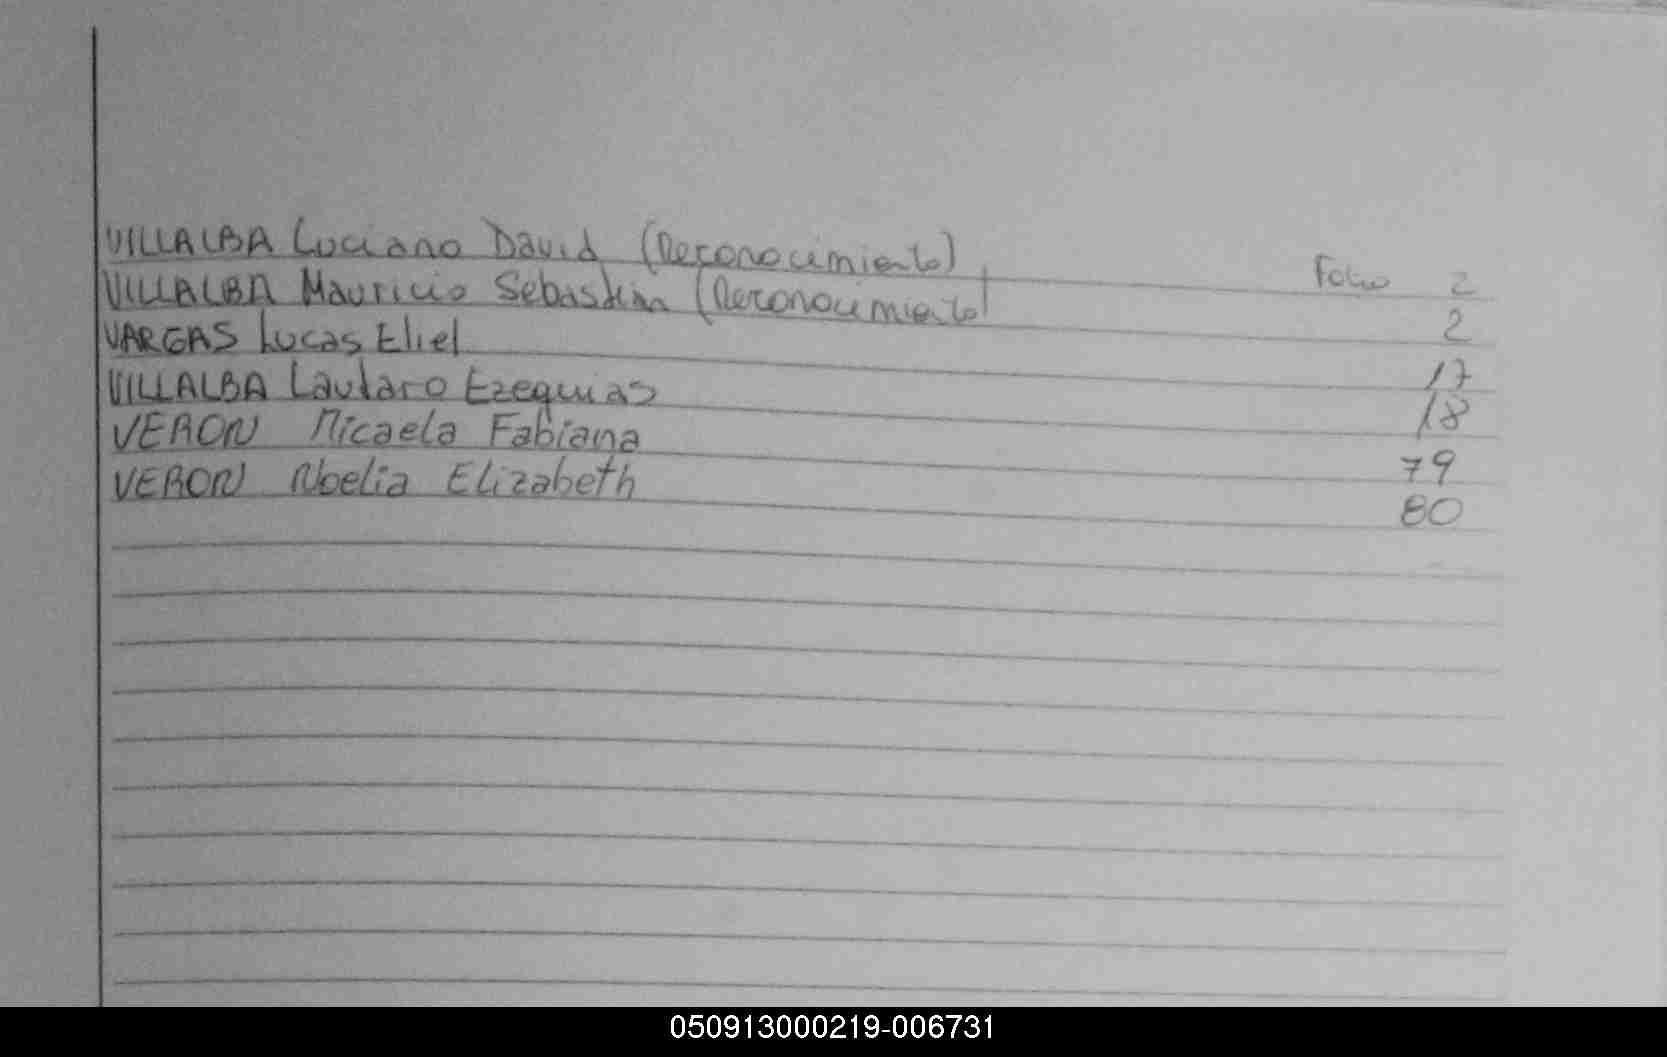 VILLALBA Luciano David (Reconocimiento) Folio 2
VILLALBA Mauricio Sebastian (Reconocimiento) 2
VARGAS Lucas Eliel 17
VILLALBA Lautaro Ezequias 18
VERON Micaela Fabiana 79
VERON Noelia Elizabeth 80
050913000219-006731